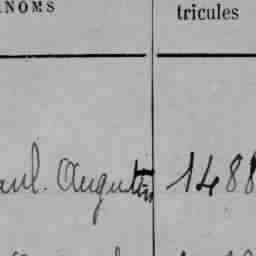 NOMS
tricules
aul. Augustin 1488